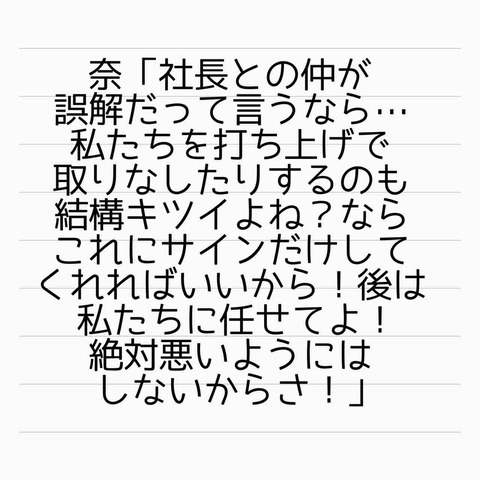 奈「社長との仲が
誤解だって言うなら…
私たちを打ち上げで
取りなしたりするのも
結構キツイよね？なら
これにサインだけして
くれればいいから！後は
私たちに任せてよ！
絶対悪いようには
しないからさ！」